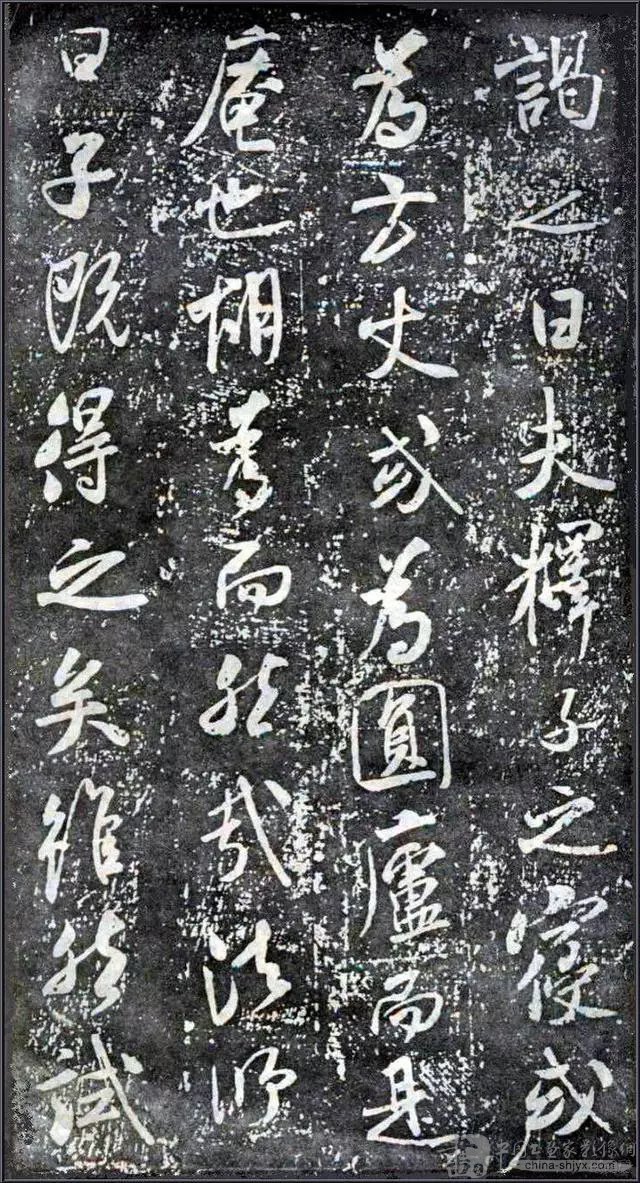 謁之曰夫釋子之寢或
為方丈或為圓廬而是
庵也胡為而然哉法師
曰子既得之矣雖然試
中国书画家影像网
china-shjyx.com